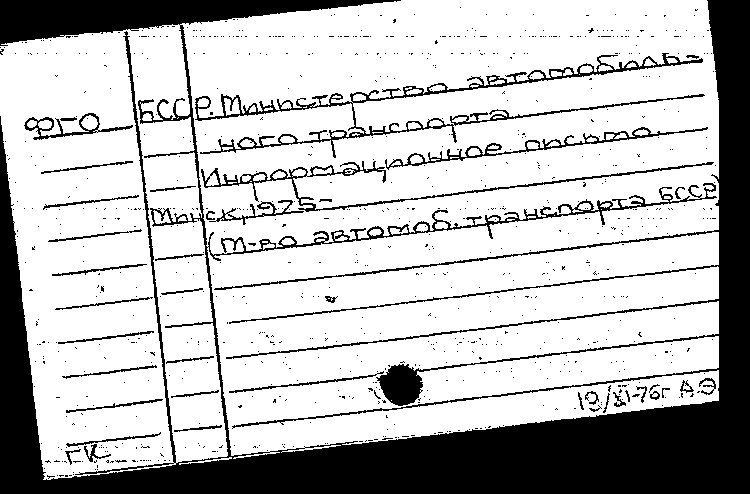 ФГО БССР. Министерство автомобиль-
ного транспорта
Информационное письмо.
Минск, 1975-
(М-во автомоб. транспорта БССР)
19/XI-76г А.Э.
ГК